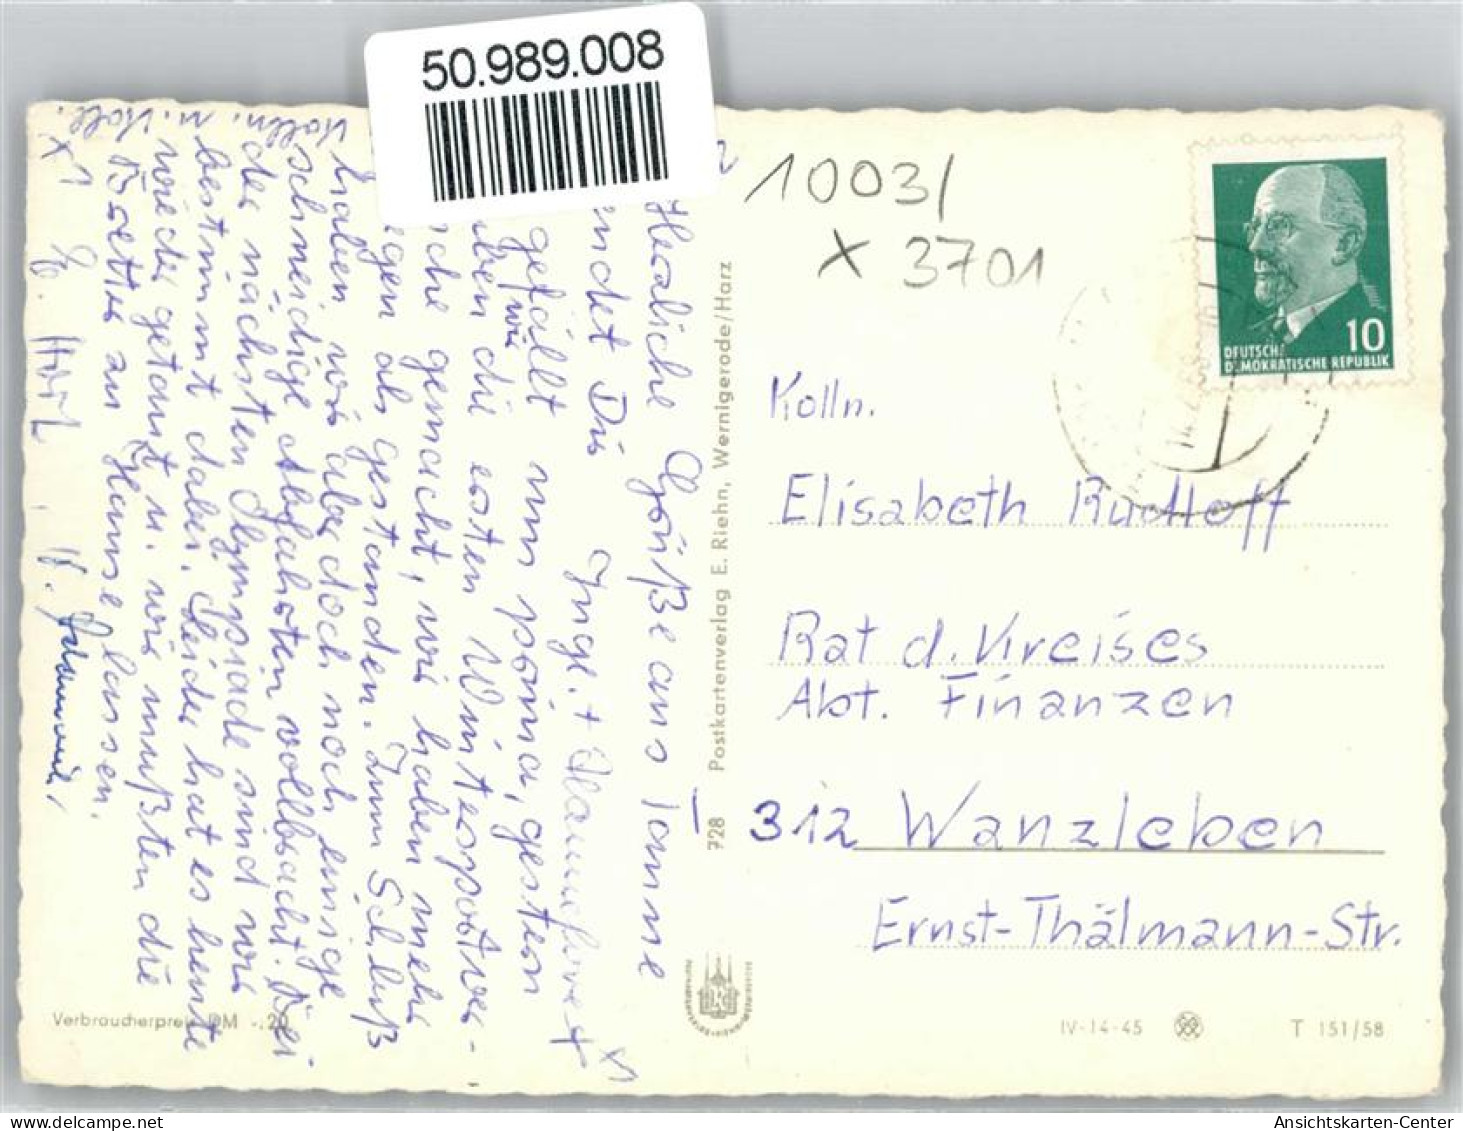 50.989.008
1003/
x 3701
10
DEUTSCHE
DEMOKRATISCHE REPUBLIK
Kolln.
Elisabeth Rudloff
Rat d. Kreises
Abt. Finanzen
312 Wanzleben
Ernst-Thälmann-Str.
Herzliche Grüße aus Tanne
Dir Inge. +
gefällt uns prima, gestern
wir
die ersten Wintersportver-
gemacht, wir haben mehr
als gestanden. Zum Schluß
haben wir aber doch noch einige
schneidige Abfahrten vollbracht. Bei
der nächsten Olympiade sind wir
bestimmt dabei. Leider hat es heute
wieder getaut u. wir mußten die
Bretter zu Hause lassen.
728 Postkartenverlag E. Riehn, Wernigerode/Harz
Verbraucherpreis DM -.20
IV-14-45
T 151/58
Ansichtskarten-Center